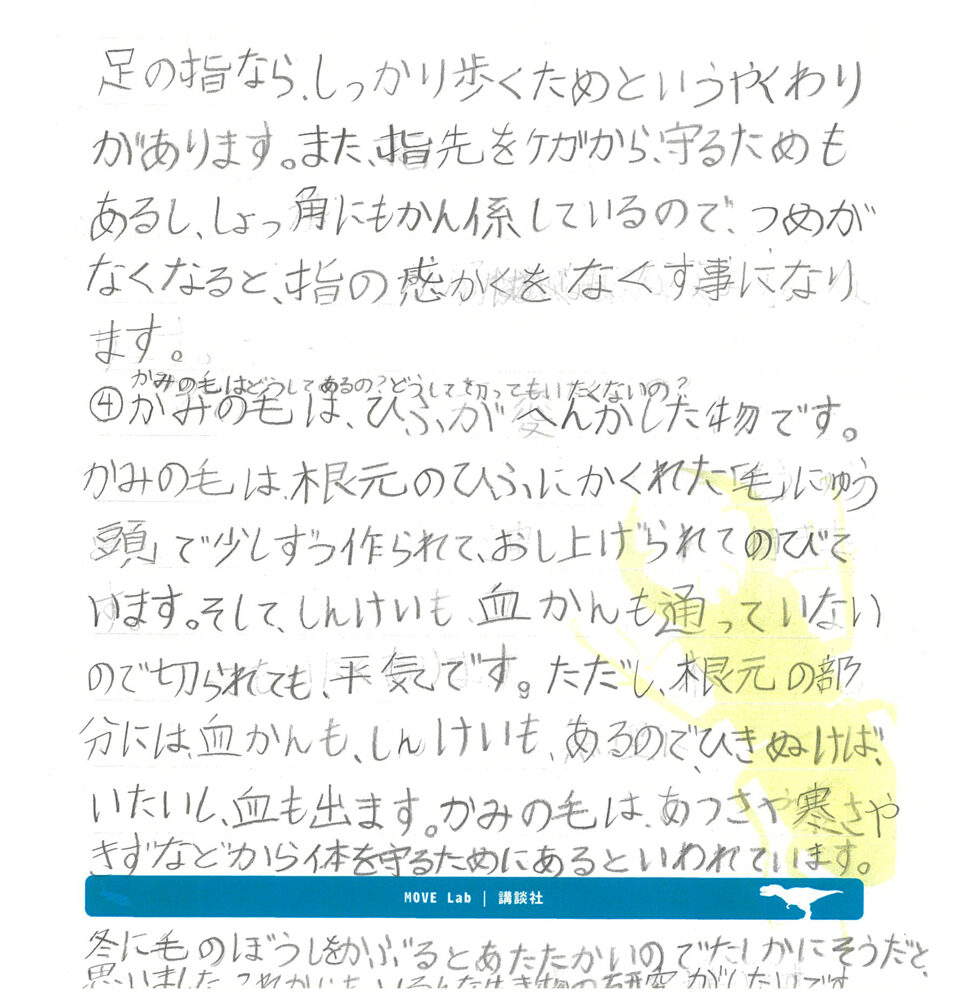 足の指なら、しっかり歩くためというやくわり
があります。また、指先をケガから、守るためも
あるし、しょっ角にもかん係しているので、つめが
なくなると、指の感かくをなくす事になり
ます。
かみの毛はどうしてあるの？どうして切ってもいたくないの？
④かみの毛は、ひふがへんかした物です。
かみの毛は、根元のひふにかくれた「毛」にゅう
頭」で少しずつ作られて、おし上げられてのびて
います。そして、しんけいも、血かんも通っていない
ので切られても、平気です。ただし、根元の部
分には、血かんも、しんけいも、あるので、ひきぬけば、
いたいし、血も出ます。かみの毛は、あつさや寒さや
きずなどから体を守るためにあるといわれています。
MOVE Lab | 講談社
冬に毛のぼうしをかぶるとあたたかいのでたしかにそうだと、
思いました。